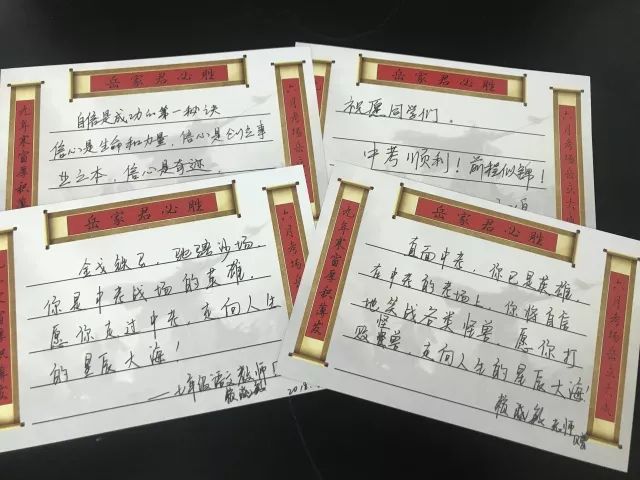 岳家君必胜
九年寒窗厚积
自信是成功的第一秘诀
信心是生命和力量，信心是创立事
业之本，信心是奇迹．
岳家君必胜
六月考场岳立大成
祝愿同学们，
中考顺利！前程似锦！
岳家君必胜
六月考场
金戈铁马，驰骋沙场，
你是中考战场的英雄，
愿你度过中考，走向人生
的星辰大海！
——七年级语文教师
2018.
岳家君必胜
九年寒窗厚积薄发
六月考场岳立大成
直面中考，你已是英雄，
在中考的考场上，你将直
地奕战各类怪兽，愿你打
败怪兽，走向人生的星辰大海！
敏老师